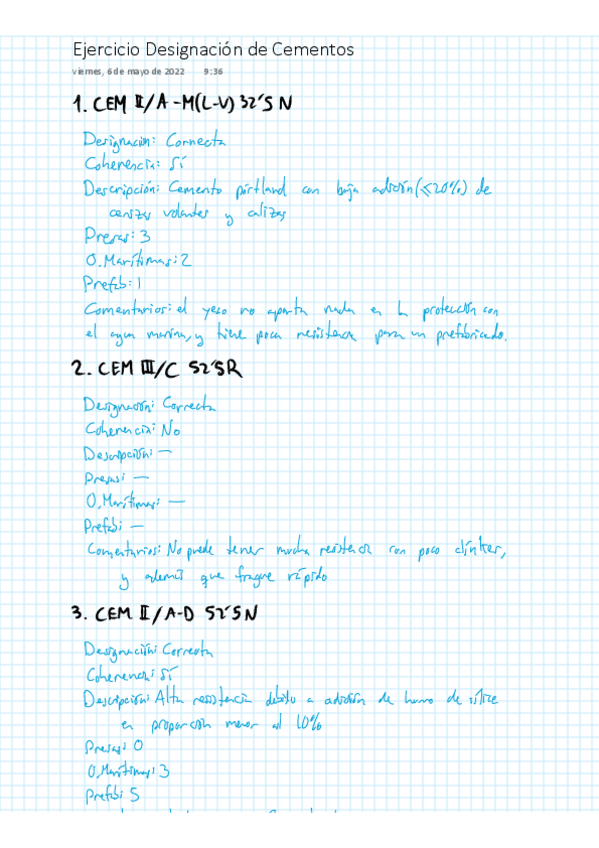 Ejercicio Designación de Cementos
viernes, 6 de mayo de 2022 9:36
1. CEM II/A-M(L-V) 32'5 N
Designación: Correcta
Coherencia: Sí
Descripción: Cemento pórtland con baja adición (≤20%) de
cenizas volantes y calizas
Presas: 3
O. Marítimas: 2
Prefab: 1
Comentarios: el yeso no aporta nada en la protección con
el agua marina, y tiene poca resistencia para un prefabricado.
2. CEM III/C 52'5R
Designación: Correcta
Coherencia: No
Descripción: —
Presas: —
O. Marítimas: —
Prefab: —
Comentarios: No puede tener mucha resistencia con poco clínker,
y además que fragüe rápido
3. CEM II/A-D 52'5N
Designación: Correcta
Coherencia: Sí
Descripción: Alta resistencia debido a adición de humo de sílice
en proporción menor al 10%
Presas: 0
O. Marítimas: 3
Prefab: 5